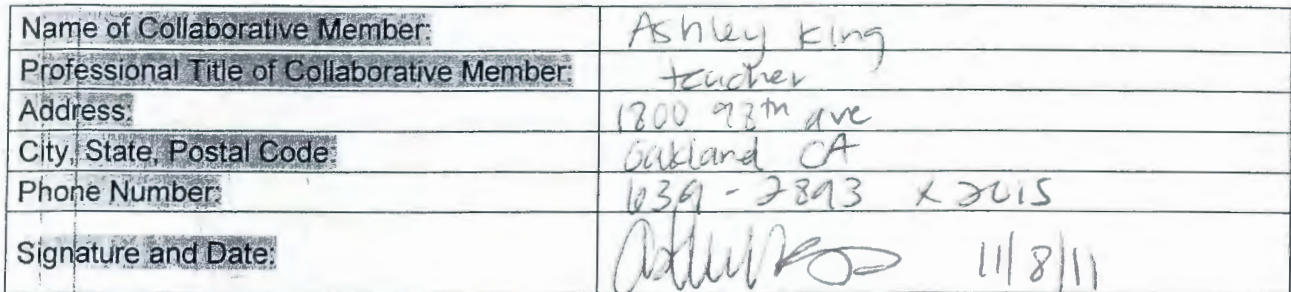 Name of Collaborative Member: Ashley King
Professional Title of Collaborative Member: teacher
Address: 1800 98th ave
City, State, Postal Code: Oakland CA
Phone Number: 639-2893 x 2015
Signature and Date: 11/8/11